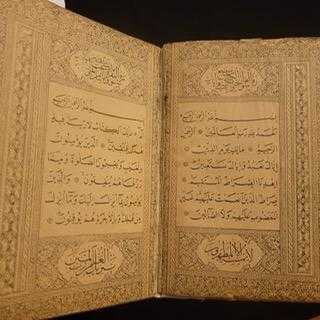 بسم الله الرحمن الرحيم
الحمد لله رب العالمين الرحمن
الرحيم مالك يوم الدين
اياك نعبد واياك نستعين
اهدنا الصراط المستقيم
صراط الذين انعمت عليهم غير ال
مغضوب عليهم ولا الضالين
لا يمسه الا المطهرون
بسم الله الرحمن الرحيم
الم ذلك الكتاب لا ريب فيه
هدى للمتقين الذين يؤمنون
بالغيب ويقيمون الصلوة ومما
رزقناهم ينفقون والذين
يؤمنون بما انزل اليك وما انزل
من قبلك وبالاخرة هم يوقنون